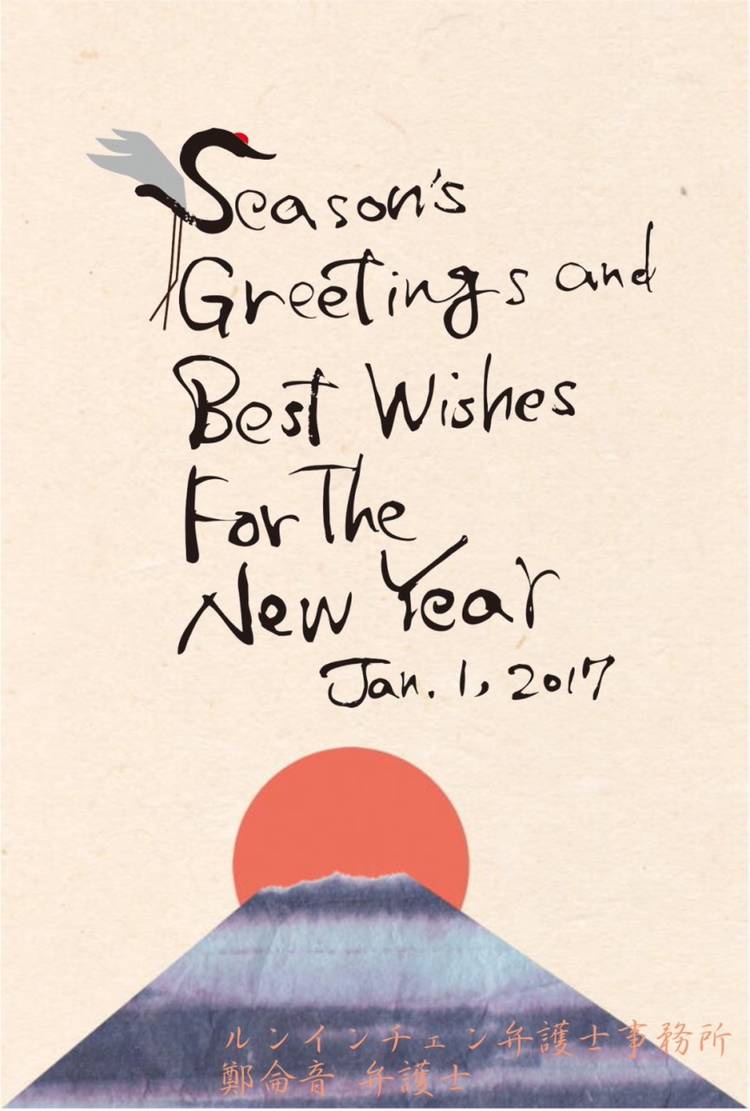 Season's
Greetings and
Best Wishes
For The
New Year
Jan. 1, 2017
ルンインチェン弁護士事務所
鄭侖音 弁護士